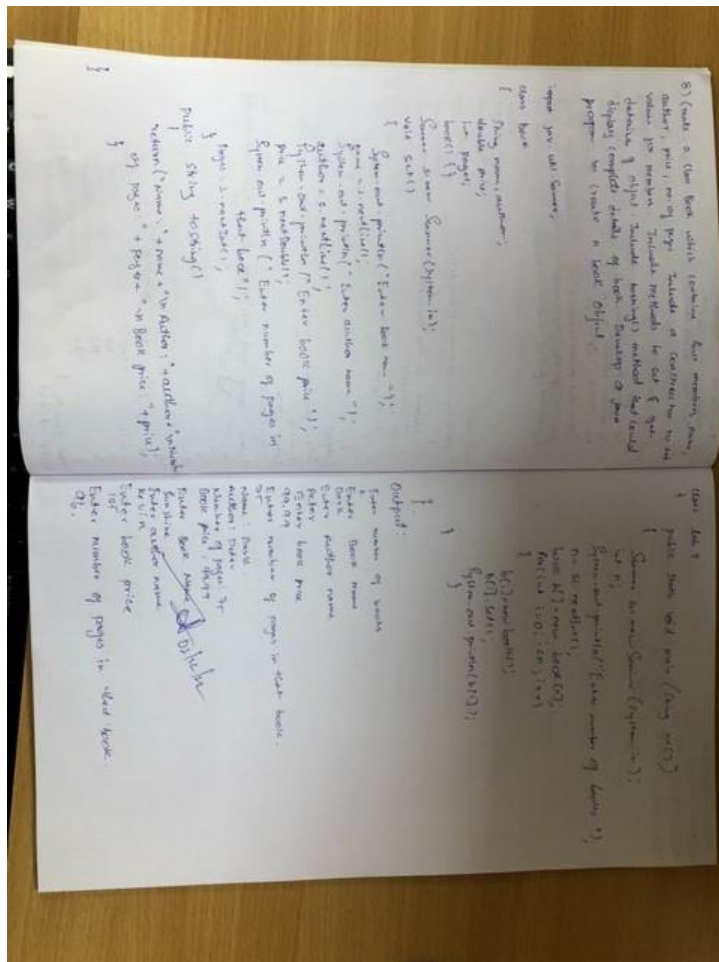 8) Create a Class Book which contains four members, name,
author, price, no. of pages. Include a Constructor to set
values for members. Include methods to set & get
details of object. Include toString() method that could
display complete details of book. Develop a java
program to create n book object.
import java.util.Scanner;
class book
{
String name, author;
double price;
int pages;
book() {}
Scanner s = new Scanner(System.in);
void set()
{
System.out.println("Enter Book name");
name = s.nextLine();
System.out.println("Enter author name");
author = s.nextLine();
System.out.println("Enter book price");
price = s.nextDouble();
System.out.println("Enter number of pages in
that book");
pages = s.nextInt();
}
public String toString()
{
return("Name: " + name + "\n Author: " + author + "\n
of pages: " + pages + "\n Book price: " + price);
}
}
class
{
public static void main (String
{
Scanner s = new Scanner (System.in);
int n;
System.out.println("Enter number of books");
n = s.nextInt();
book b[] = new book[n];
for(int i=0; i<n; i++)
{
b[i] = new book();
b[i].set();
System.out.println(b[i]);
}
}
}
Output:
Enter number of books
Enter Book name
Enter author name
Peter
Enter book price
99.99
Enter number of pages in that book.
Name:
Author: Peter
Number of pages
Book price: 99.99
Enter Book Name
Sunshine
Enter author name
Kevin
Enter book price
Enter number of pages in that book.
96.